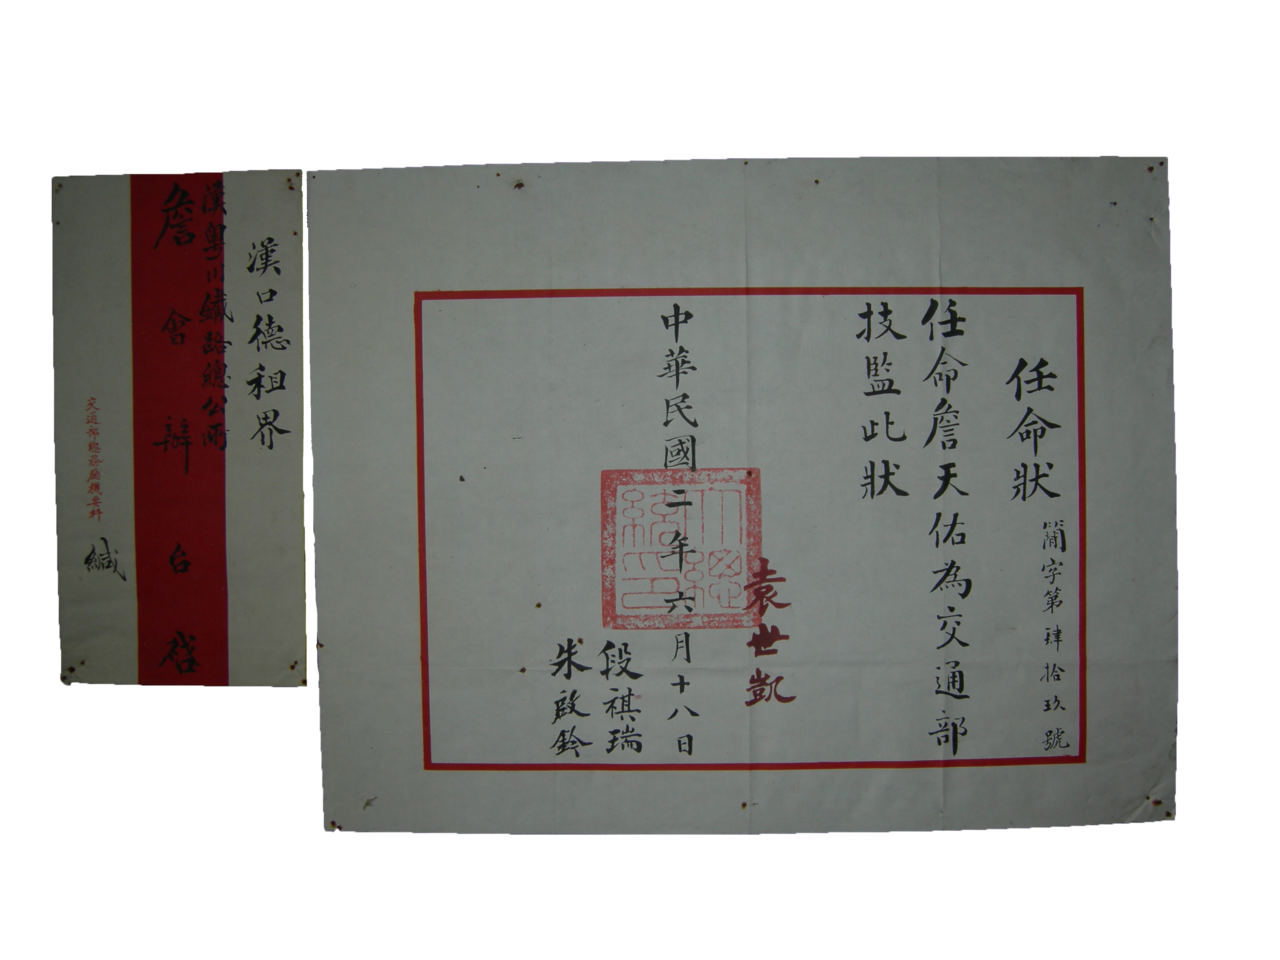 任命狀
簡字第肆拾玖號
任命詹天佑為交通部
技監此狀
袁世凱
中華民國二年六月十八日
大總
統印
段祺瑞
朱啟鈐
漢口德租界
漢粵川鐵路總公所
詹會辦台啓
交通部總務廳機要科
緘